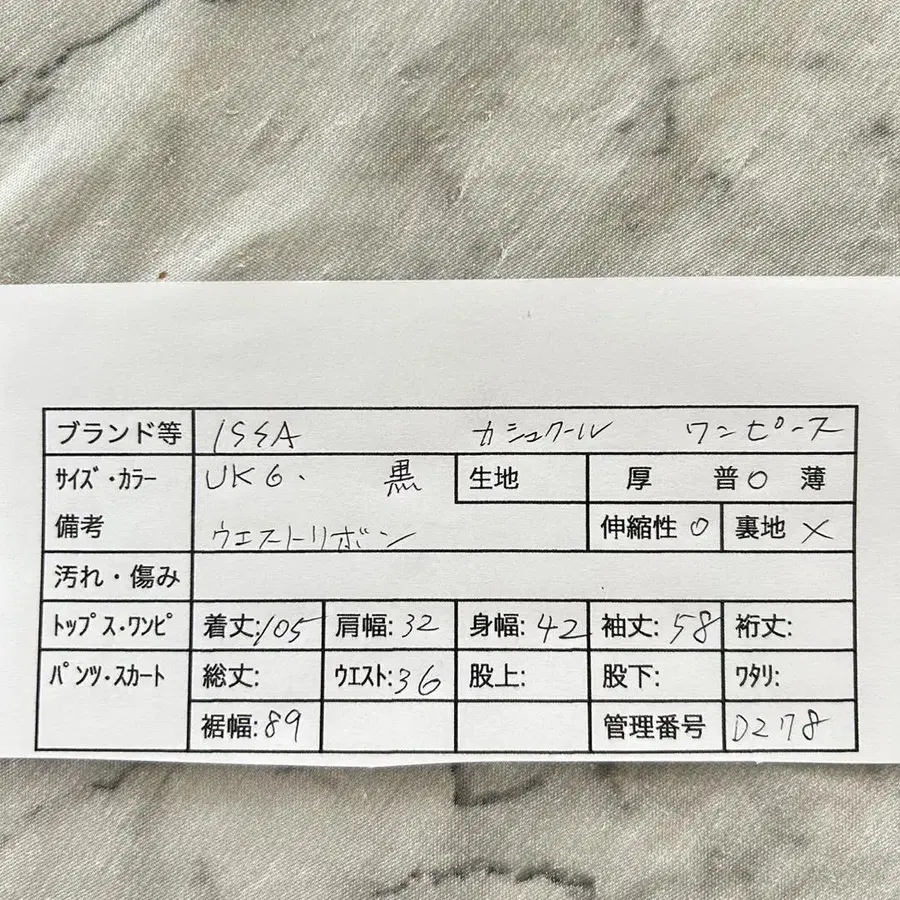 ブランド等 ISSA カシュクール ワンピース
サイズ・カラー UK6. 黒 生地 厚 普○ 薄
備考 ウエストリボン 伸縮性 ○ 裏地 ×
汚れ・傷み
トップス・ワンピ 着丈:105 肩幅:32 身幅:42 袖丈:58 裄丈:
パンツ・スカート 総丈: ウエスト:36 股上: 股下: ワタリ:
裾幅:89 管理番号 D278